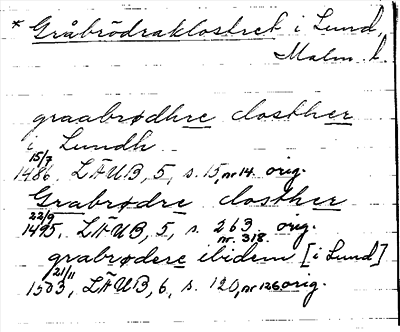 * Gråbrödraklostret i Lund,
Malm. l.
graabrødhre closther
i Lundh
15/7
1486. LÄUB, 5, s. 15, nr 14. orig.
Grabrødre closther
22/9
1495, LÄUB, 5, s. 263 orig.
nr. 318.
grabrødere ibidem [i Lund]
21/11
1503, LÄUB, 6, s. 120, nr 126 orig.